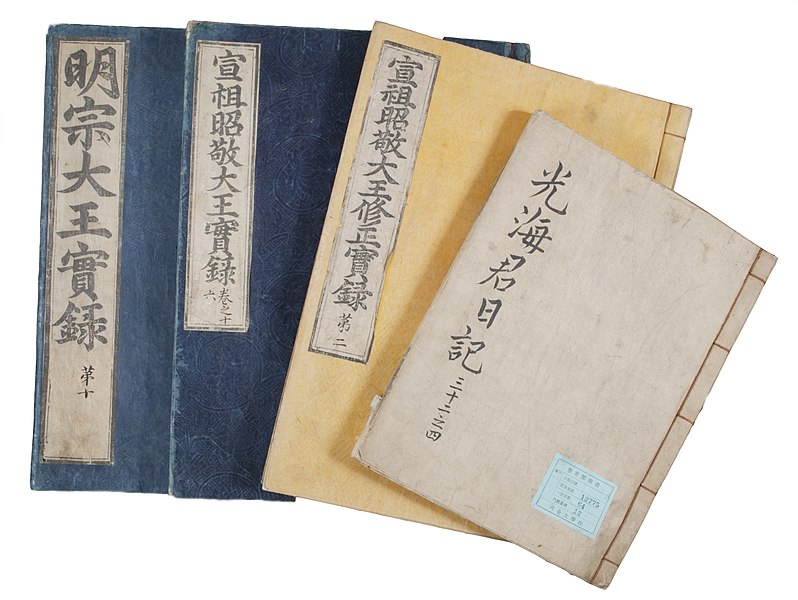 明宗大王實錄
第十
宣祖昭敬大王實錄
卷之十
六
宣祖昭敬大王修正實錄
第二
光海君日記
三十二之四
奎章閣圖書
12775
64
12